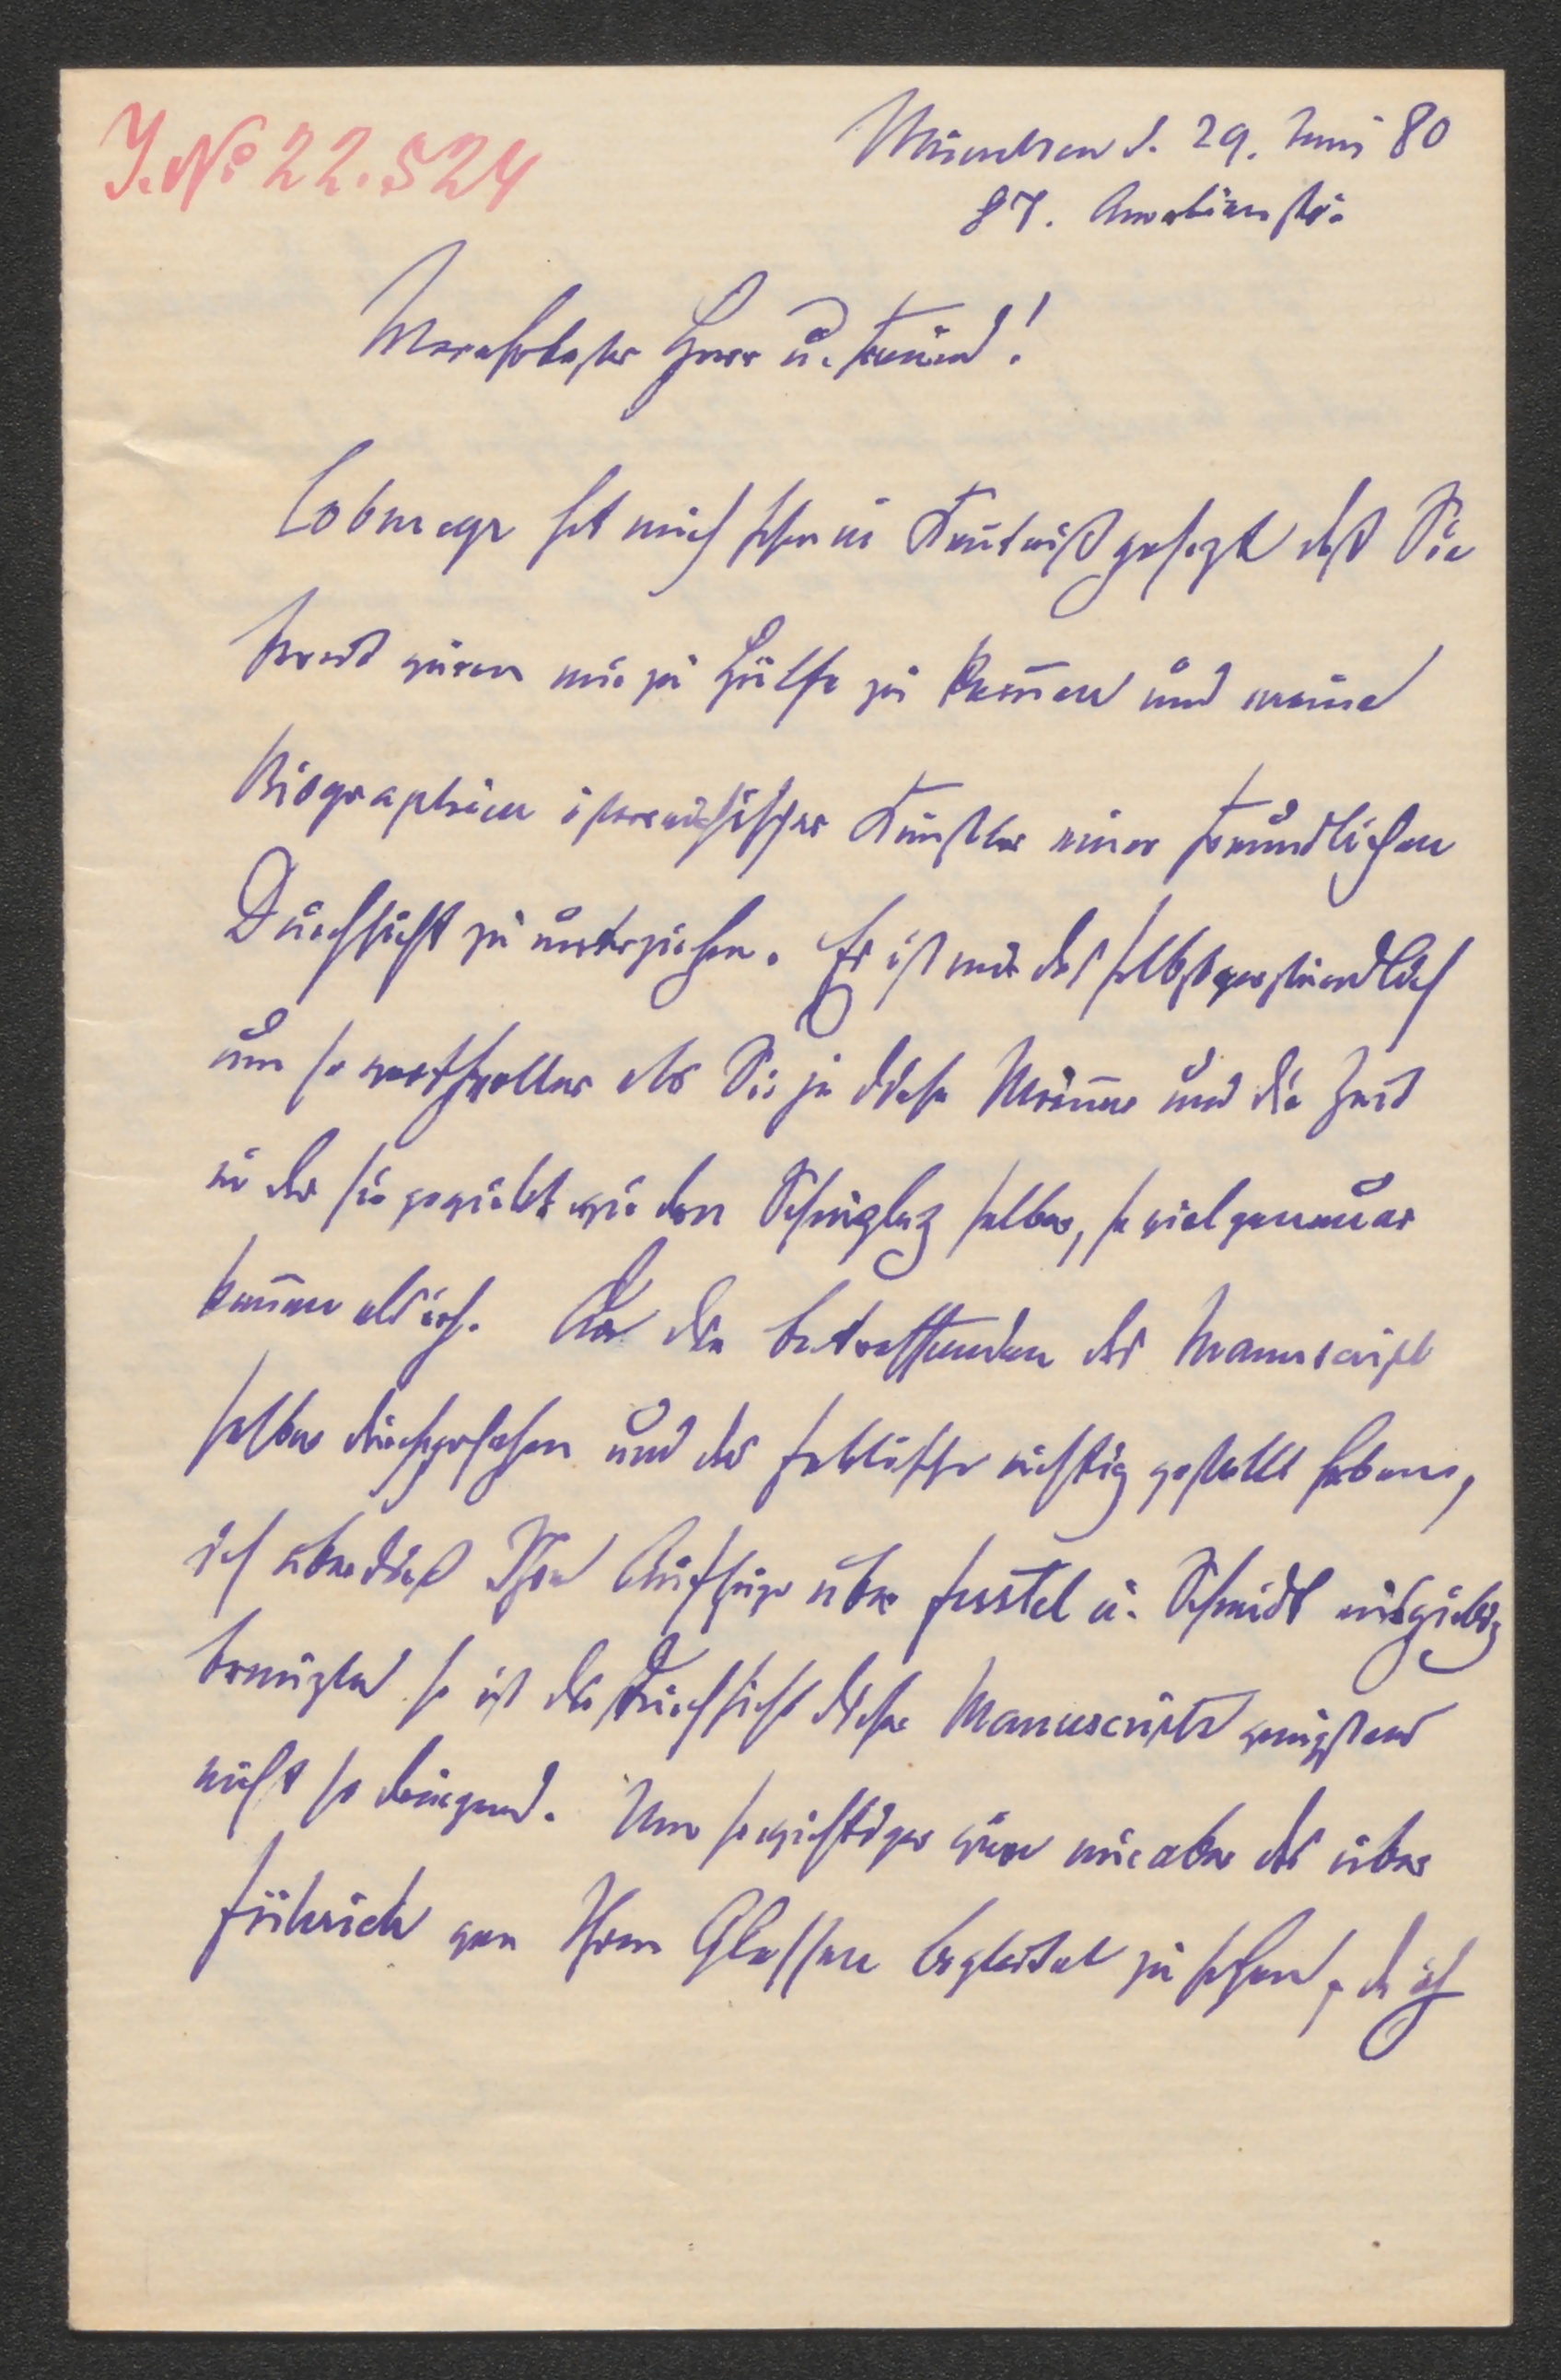 J. No 22.524
München d. 29. Juni 80
87. Amalienstr.
Verehrtester Herr u. Freund!
Lobmeyr hat mich schon in Kentniß gesezt daß Sie
bereit wären mir zu Hülfe zu kom̅en und meine
Biographien österreichischer Künstler einer freundlichen
Durchsicht zu unterziehen. Es ist mir das selbstverständlich
um so werthvoller als Sie ja diese Män̅er und die Zeit
in der sie gewirkt wie den Schauplaz selber, so viel genauer
ken̅en als ich. Da die betreffenden das Manuscript
selber durchgesehen und das faktische richtig gestellt haben,
ich überdieß Ihre Aufsäze über Ferstel u. Schmidt ausgiebig
benuzte so ist die Durchsicht dieser Manuscripte wenigstens
nicht so dringend. Um so wichtiger wäre mir aber das über
Führich von Ihren Glossen begleitet zu sehen, da ich